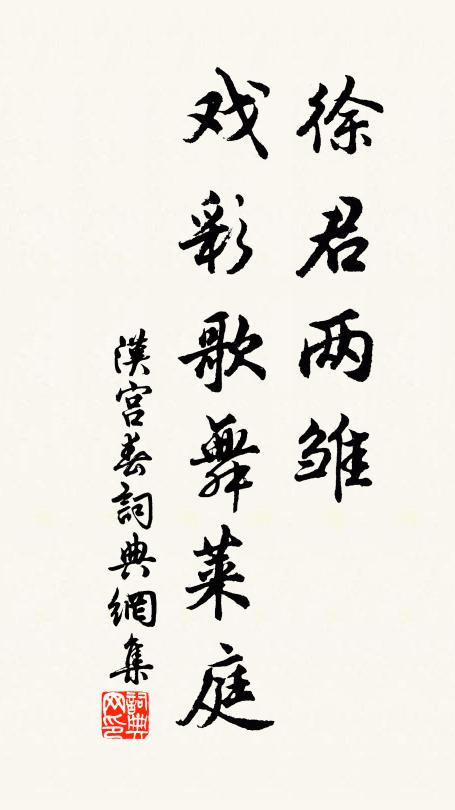 徐君两雏
戏彩歌舞莱庭
漢宫春詞典網集
詞典
网印